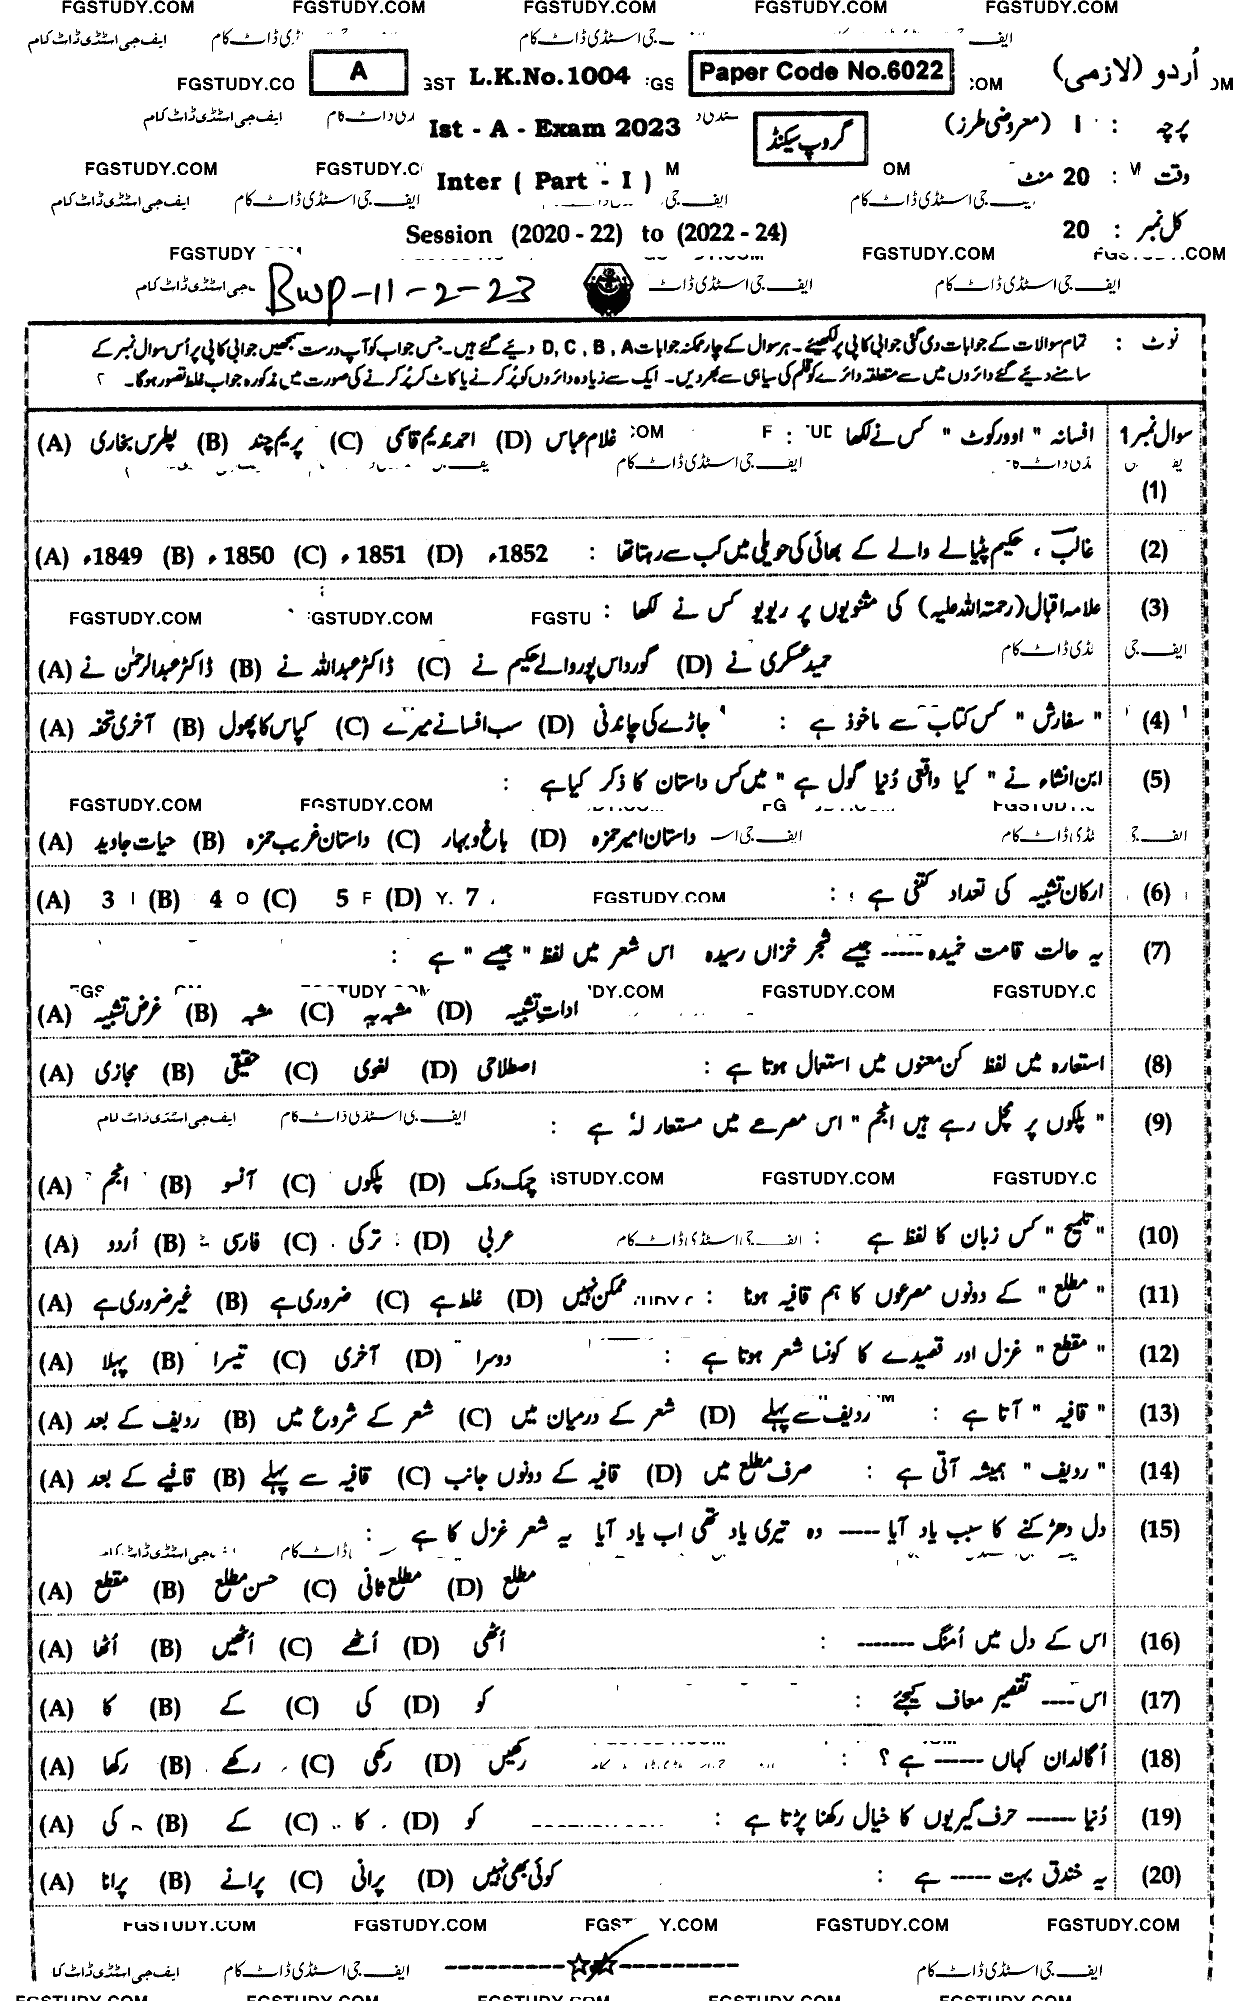 FGSTUDY.COM FGSTUDY.COM FGSTUDY.COM FGSTUDY.COM FGSTUDY.COM
اُردو (لازمی) Paper Code No.6022 L.K.No.1004 A
پرچہ : I (معروضی طرز) گروپ سیکنڈ Ist - A - Exam 2023
وقت : 20 منٹ Inter ( Part - I )
کل نمبر : 20 Session (2020 - 22) to (2022 - 24)
Bwp-11-2-23
نوٹ : تمام سوالات کے جوابات دی گئی جوابی کاپی پر لکھیئے۔ ہر سوال کے چار ممکنہ جوابات D, C, B, A دیئے گئے ہیں۔ جس جواب کو آپ درست سمجھیں جوابی کاپی پر اُس سوال نمبر کے
سامنے دیئے گئے دائروں میں سے متعلقہ دائرے کو قلم کی سیاہی سے بھر دیں۔ ایک سے زیادہ دائروں کو پُر کرنے یا کاٹ کر پُر کرنے کی صورت میں مذکورہ جواب غلط تصور ہوگا۔
سوال نمبر 1 (1) افسانہ " اوورکوٹ " کس نے لکھا : (A) پطرس بخاری (B) پریم چند (C) احمد ندیم قاسمی (D) غلام عباس
(2) غالب، حکیم پٹیالے والے کے بھائی کی حویلی میں کب سے رہتا تھا : (A) 1849ء (B) 1850ء (C) 1851ء (D) 1852ء
(3) علامہ اقبال (رحمتہ اللہ علیہ) کی مثنویوں پر ریویو کس نے لکھا :
(A) ڈاکٹر عبدالرحمٰن نے (B) ڈاکٹر عبداللہ نے (C) گورداس پور والے حکیم نے (D) حمید عسکری نے
(4) " سفارش " کس کتاب سے ماخوذ ہے : (A) آخری تحفہ (B) کپاس کا پھول (C) سب افسانے میرے (D) جاڑے کی چاندنی
(5) ابن انشاء نے " کیا واقعی دُنیا گول ہے " میں کس داستان کا ذکر کیا ہے :
(A) حیات جاوید (B) داستان غریب حمزہ (C) باغ و بہار (D) داستان امیر حمزہ
(6) ارکان تشبیہ کی تعداد کتنی ہے : (A) 3 (B) 4 (C) 5 (D) 7
(7) یہ حالت قامت خمیدہ ----- جیسے شجر خزاں رسیدہ اس شعر میں لفظ " جیسے " ہے :
(A) غرض تشبیہ (B) مشبہ (C) مشبہ بہ (D) ادات تشبیہ
(8) استعارہ میں لفظ کن معنوں میں استعمال ہوتا ہے : (A) مجازی (B) حقیقی (C) لغوی (D) اصطلاحی
(9) " پلکوں پر مچل رہے ہیں انجم " اس مصرعے میں مستعار لہٗ ہے :
(A) انجم (B) آنسو (C) پلکوں (D) چمک دمک
(10) " تلمیح " کس زبان کا لفظ ہے : (A) اُردو (B) فارسی (C) ترکی (D) عربی
(11) " مطلع " کے دونوں مصرعوں کا ہم قافیہ ہونا : (A) غیر ضروری ہے (B) ضروری ہے (C) غلط ہے (D) ممکن نہیں
(12) " مقطع " غزل اور قصیدے کا کونسا شعر ہوتا ہے : (A) پہلا (B) تیسرا (C) آخری (D) دوسرا
(13) " قافیہ " آتا ہے : (A) ردیف کے بعد (B) شعر کے شروع میں (C) شعر کے درمیان میں (D) ردیف سے پہلے
(14) " ردیف " ہمیشہ آتی ہے : (A) قافیے کے بعد (B) قافیہ سے پہلے (C) قافیہ کے دونوں جانب (D) صرف مطلع میں
(15) دل دھڑکنے کا سبب یاد آیا ----- وہ تیری یاد تھی اب یاد آیا یہ شعر غزل کا ہے :
(A) مقطع (B) حسن مطلع (C) مطلع ثانی (D) مطلع
(16) اس کے دل میں اُمنگ ------- : (A) اُٹھا (B) اُٹھیں (C) اُٹھے (D) اُٹھی
(17) اس ---- تقصیر معاف کیجئے : (A) کا (B) کے (C) کی (D) کو
(18) اُگالدان کہاں ------ ہے ؟ : (A) رکھا (B) رکھے (C) رکھی (D) رکھیں
(19) دُنیا ------ حرف گیریوں کا خیال رکھنا پڑتا ہے : (A) کی (B) کے (C) کا (D) کو
(20) یہ خندق بہت ----- ہے : (A) پرانا (B) پرانے (C) پرانی (D) کوئی بھی نہیں
FGSTUDY.COM FGSTUDY.COM FGSTUDY.COM FGSTUDY.COM
ایف جی اسٹڈی ڈاٹ کام ایف جی اسٹڈی ڈاٹ کام